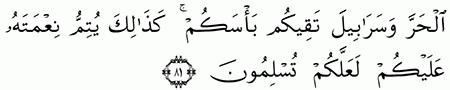 ٱلْحَرَّ وَسَرَٰبِيلَ تَقِيكُم بَأْسَكُمْ ۚ كَذَٰلِكَ يُتِمُّ نِعْمَتَهُۥ
عَلَيْكُمْ لَعَلَّكُمْ تُسْلِمُونَ ﴿٨١﴾